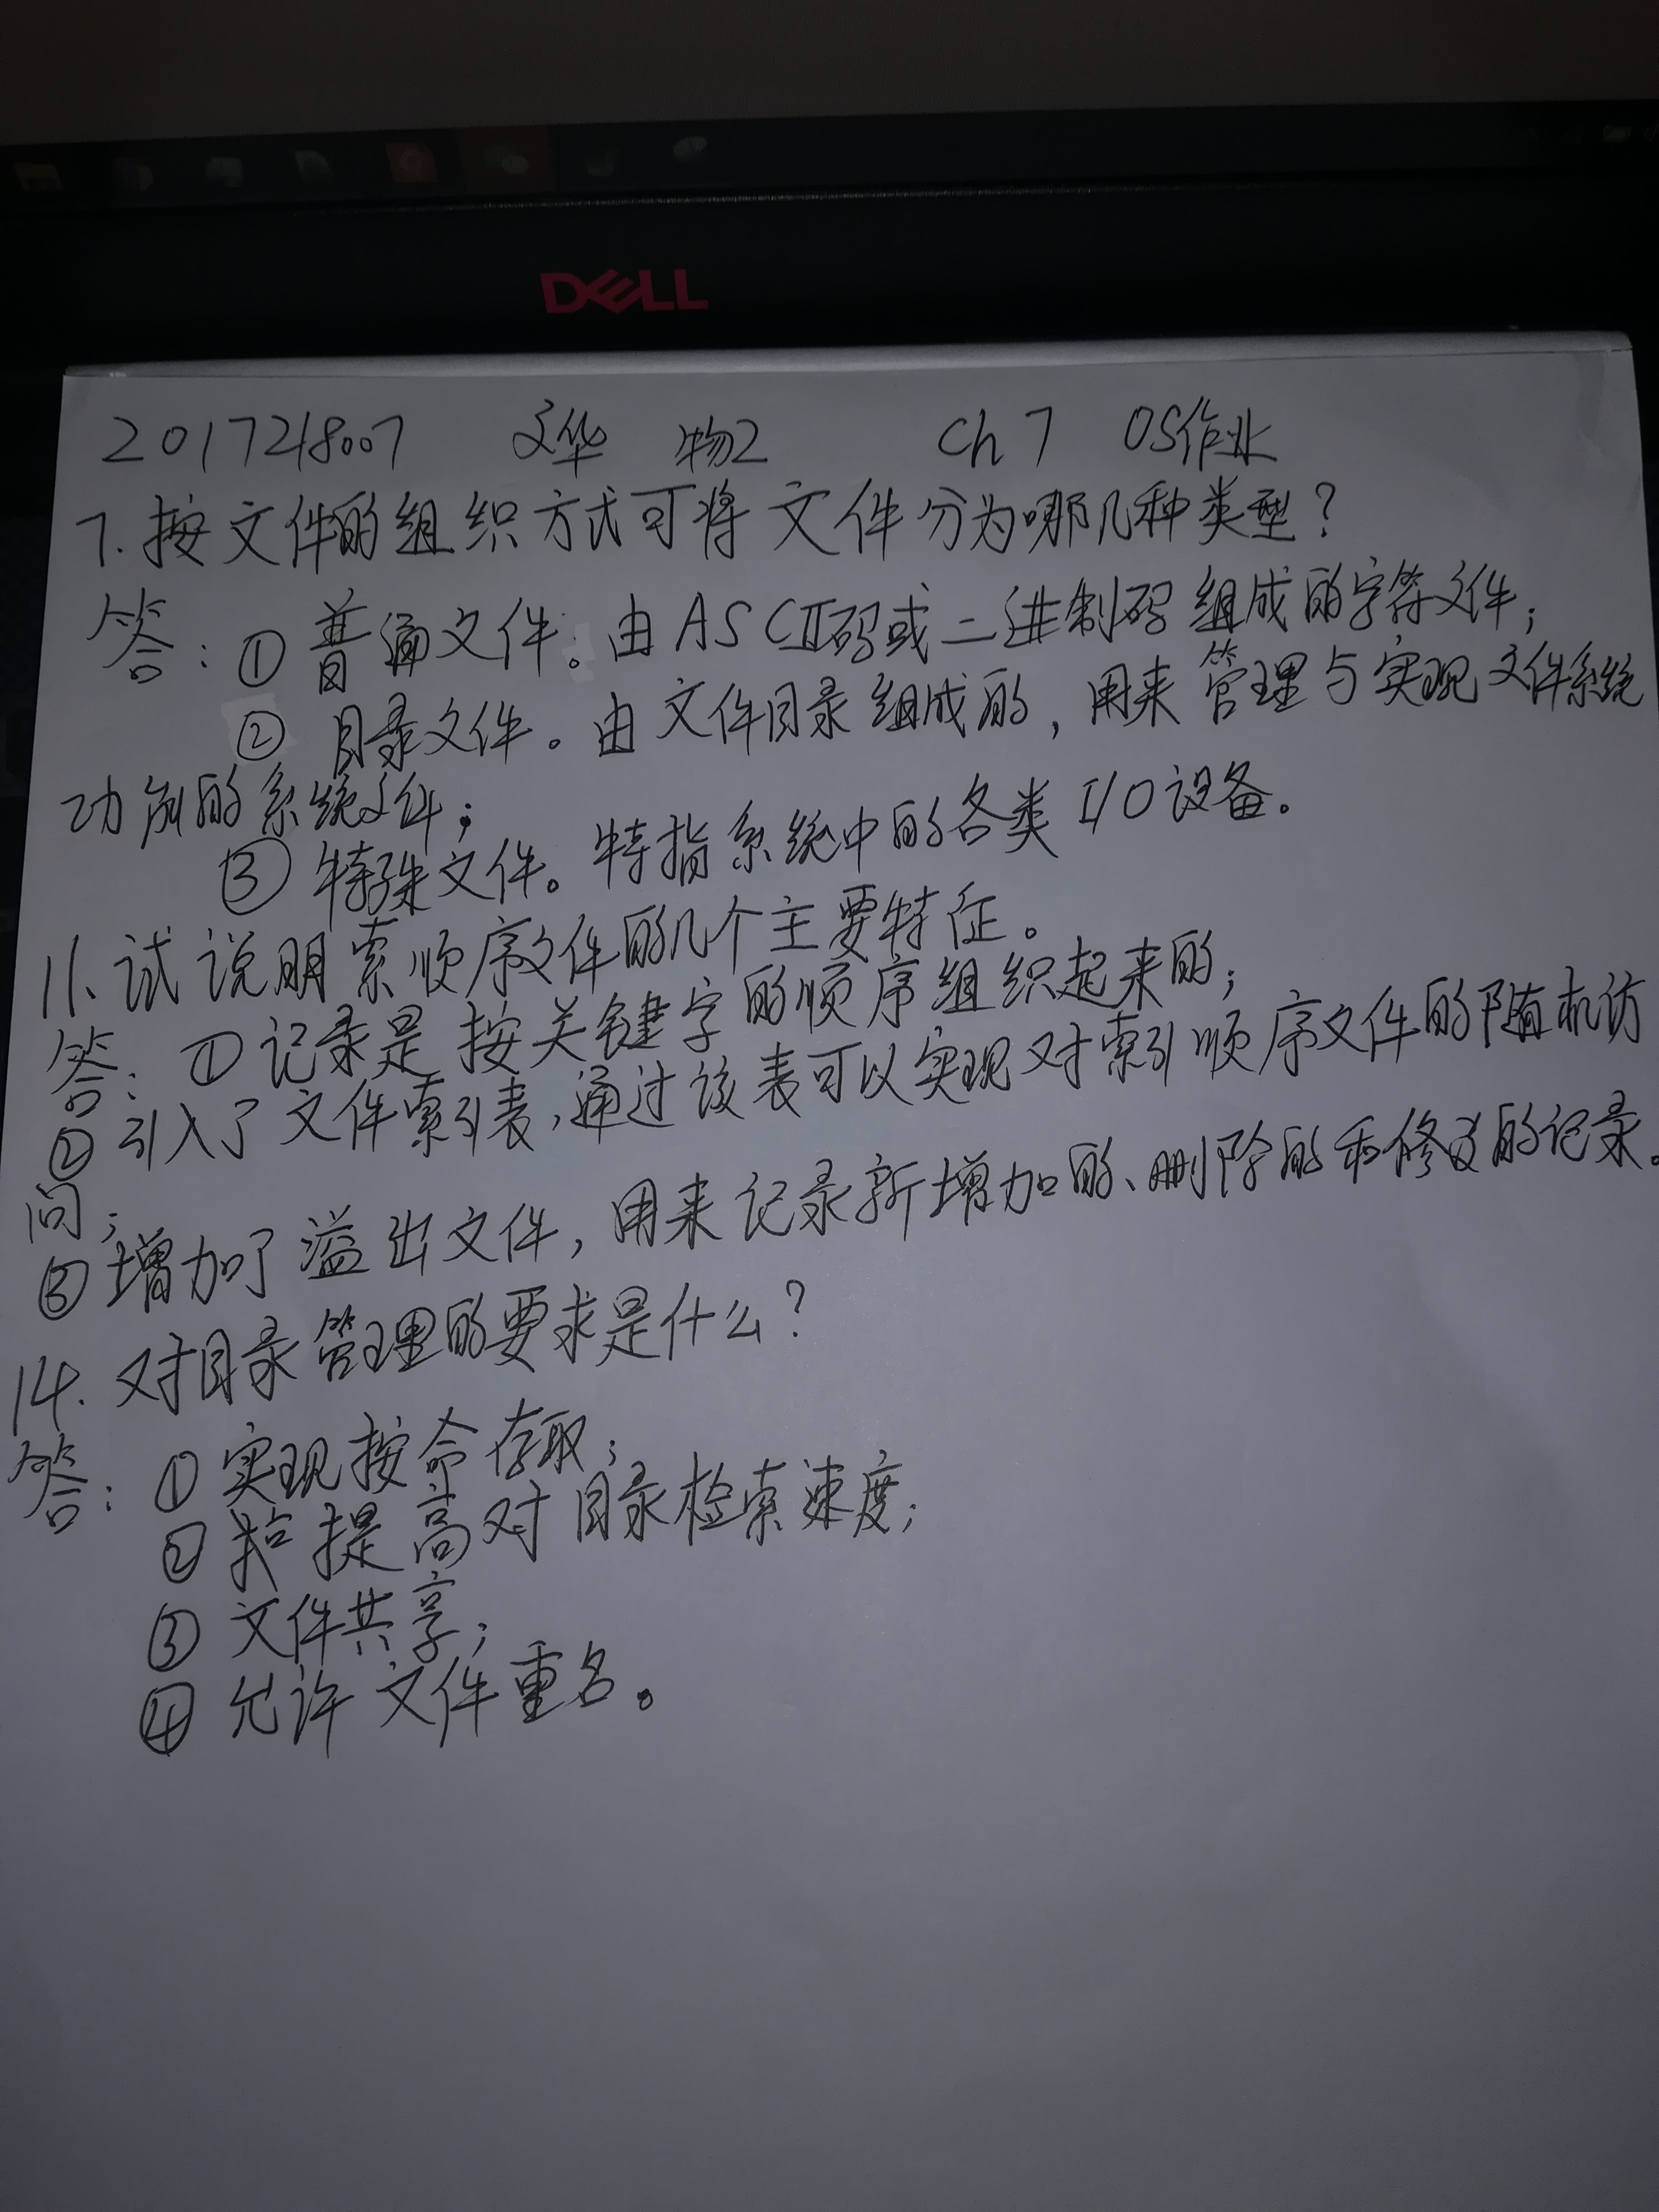 DELL
2017218007 文华 物2 Ch7 OS作业
7. 按文件的组织方式可将文件分为哪几种类型？
答：① 普通文件。由ASCII码或二进制码组成的字符文件；
② 目录文件。由文件目录组成的，用来管理与实现文件系统
功能的系统文件；
③ 特殊文件。特指系统中的各类I/O设备。
11、试说明索顺序文件的几个主要特征。
答：① 记录是按关键字的顺序组织起来的；
② 引入了文件索引表，通过该表可以实现对索引顺序文件的随机访
问；
③ 增加了溢出文件，用来记录新增加的、删除的和修改的记录。
14. 对目录管理的要求是什么？
答：① 实现按命存取；
② 提高对目录检索速度；
③ 文件共享；
④ 允许文件重名。